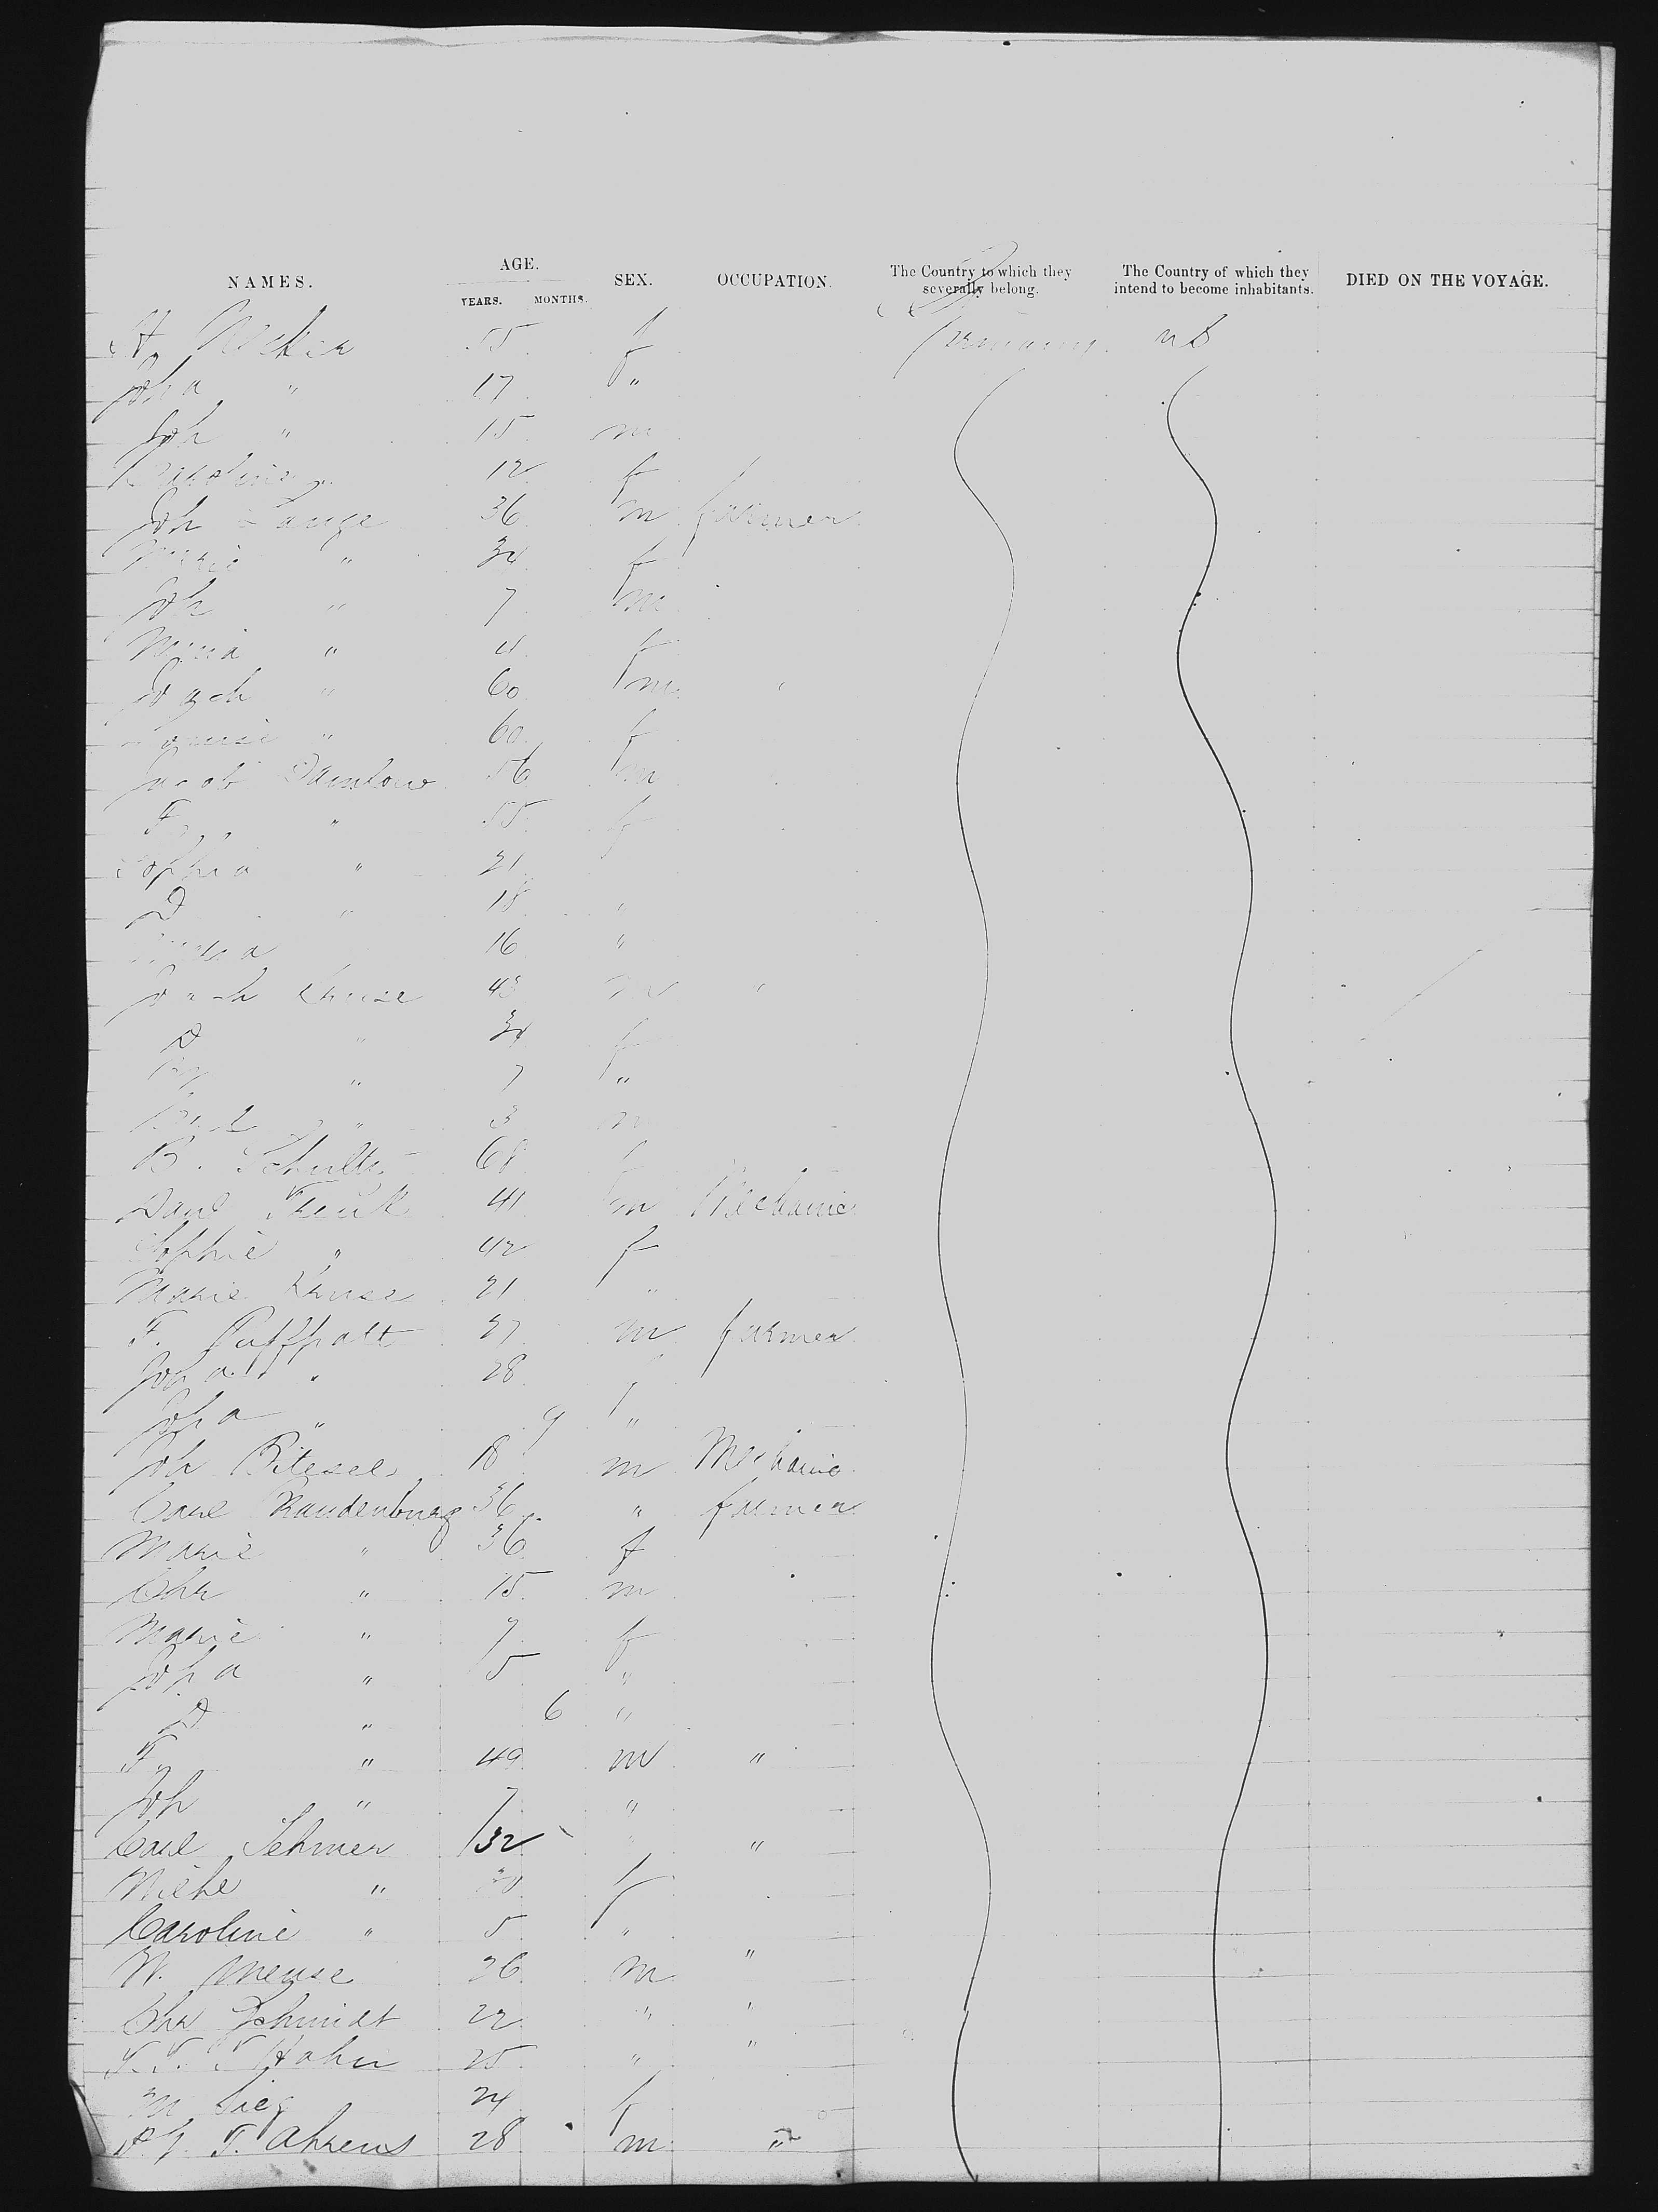 NAMES. AGE. YEARS. MONTHS. SEX. OCCUPATION. The Country to which they severally belong. The Country of which they intend to become inhabitants. DIED ON THE VOYAGE.
55 f Germany U S
Joh a " 17 "
Joh " 15 m
Caroline " 12 f
Joh Lange 36 m farmer
Marie " 34 f
Joh " 7 m
Mina " 4 f
Joach " 60 m "
Louise " 60 f
Jacob 56 m
F " 55 f
Sophia " 21
D " 18 "
16 "
Joach Kruse 43 m "
D " 34 f
" 7 "
" 3 m
B. Schultz 68 f
41 m Mechanic
Sophie " 42 f
Marie Kruse 21 "
F. Puffpatt 27 m farmer
Joh a " 28 f
Joh a " 9 "
Joh 18 m Mechanic
Carl Brandenburg 36 " farmer
Marie " 36 f
Chr " 15 m
Marie " 7 f
Joh a " 5 "
D " 6 "
F " 49 m "
Joh " 7 "
Carl 32 " "
" 30 f
Caroline " 5 "
W. 26 m "
Chr Schmidt 22 " "
Hahn 25 " "
M Sieg 24 f
T. Ahrens 28 m "